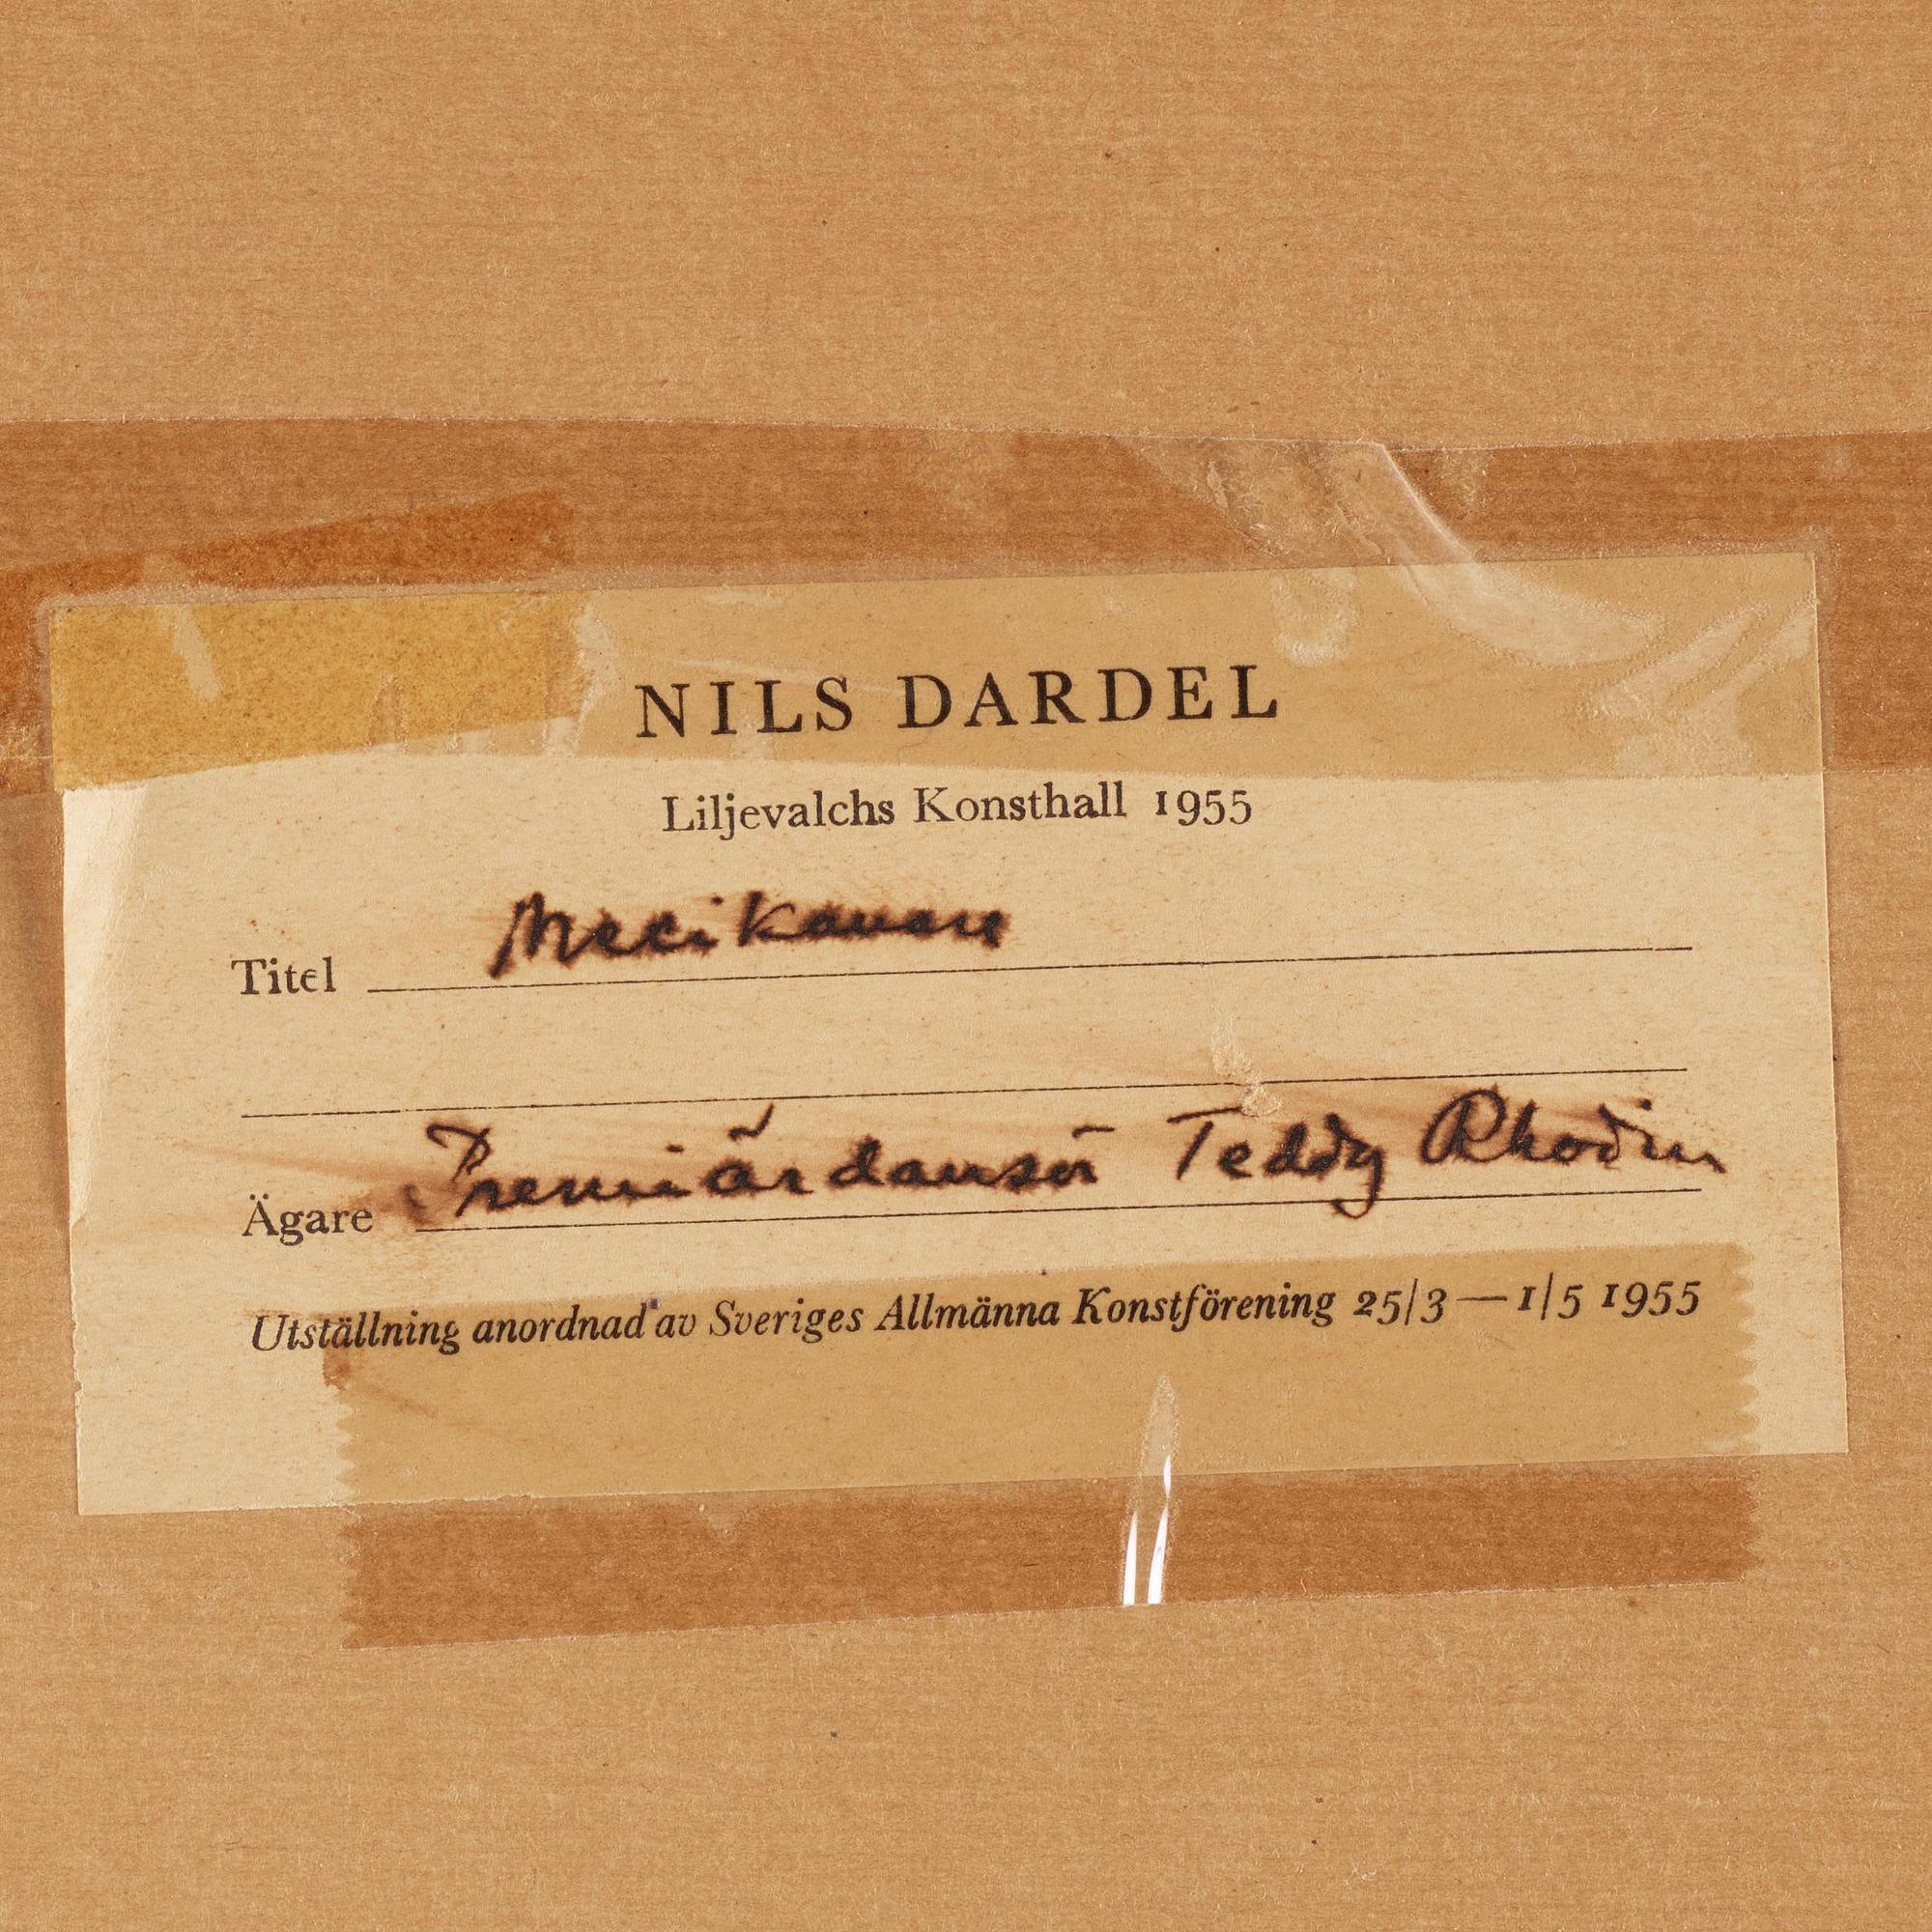 NILS DARDEL
Liljevalchs Konsthall 1955
Titel Mexikanare
Ägare Premiärdansör Teddy Rhodin
Utställning anordnad av Sveriges Allmänna Konstförening 25/3 — 1/5 1955